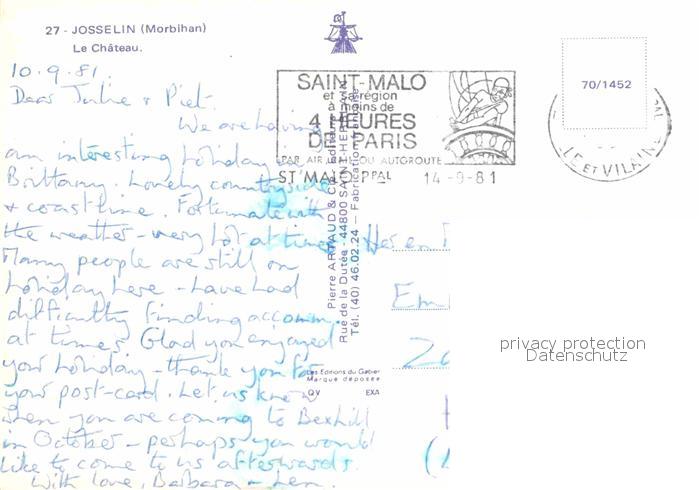 27 - JOSSELIN (Morbihan)
Le Château.
10.9.81.
Dear Julie & Piet.
We are having
an interesting holiday in
Brittany. Lovely countryside
& coastline. Fortunate with
the weather - very hot at times
Many people are still on
holiday here - have had
difficulty finding accomm.
at times. Glad you enjoyed
your holiday - thank you for
your post-card. Let us know
when you are coming to Bexhill
in October - perhaps you would
like to come to us afterwards.
With love, Barbara & Len.
SAINT-MALO
et sa région
à moins de
4 HEURES
DE PARIS
PAR AIR, RAIL OU AUTOROUTE
ST MALO PPAL 14-9-81
70/1452
ILLE ET VILAINE
Pierre ARTAUD & Cie Editeurs
Rue de la Dutée - 44800 SAINT-HERBLAIN
Tél. (40) 46.02.24 - Fabrication
Les Editions du Gabier
Marque déposée
QV EXA
Her en
Em
privacy protection
Datenschutz